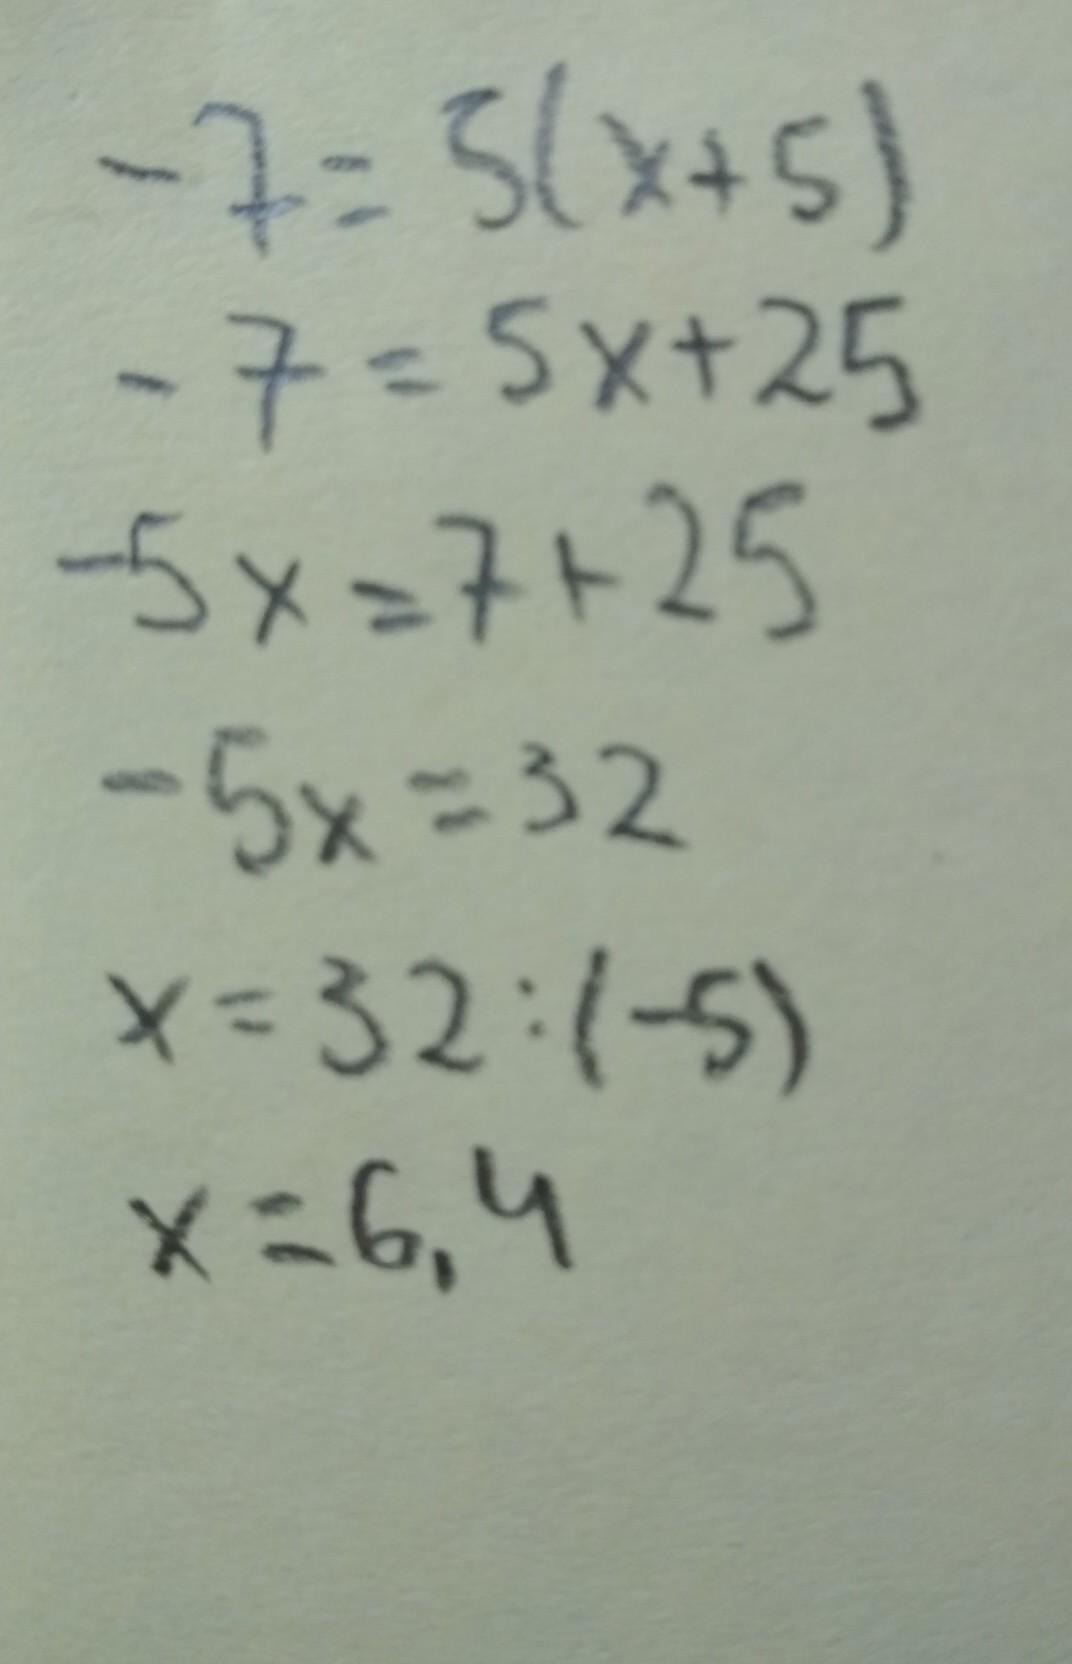 -7=5(x+5)
-7=5x+25
-5x=7+25
-5x=32
x=32:(-5)
x=6,4